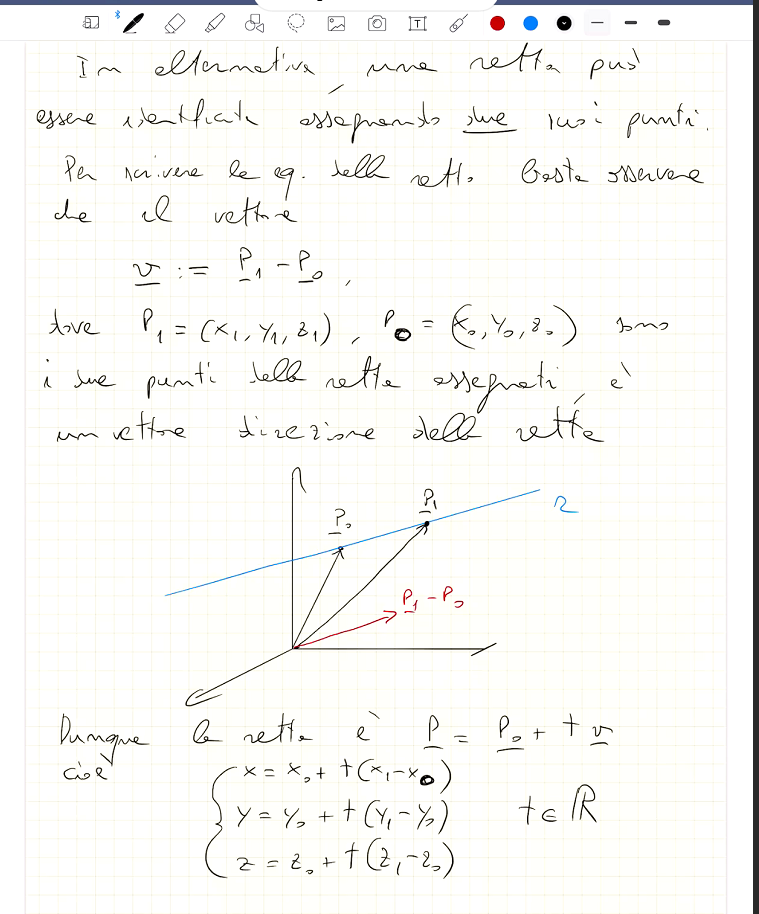 In alternativa, una retta può
essere identificata assegnando due suoi punti.
Per scrivere le eq. della retta basta osservare
che il vettore
v := P₁ - P₀,
dove P₁ = (x₁, y₁, z₁), P₀ = (x₀, y₀, z₀) sono
i due punti della retta assegnati, è
un vettore direzione della retta
P₀
P₁
r
P₁ - P₀
Dunque la retta è P = P₀ + t v
cioè
x = x₀ + t(x₁ - x₀)
y = y₀ + t(y₁ - y₀) t ∈ ℝ
z = z₀ + t(z₁ - z₀)